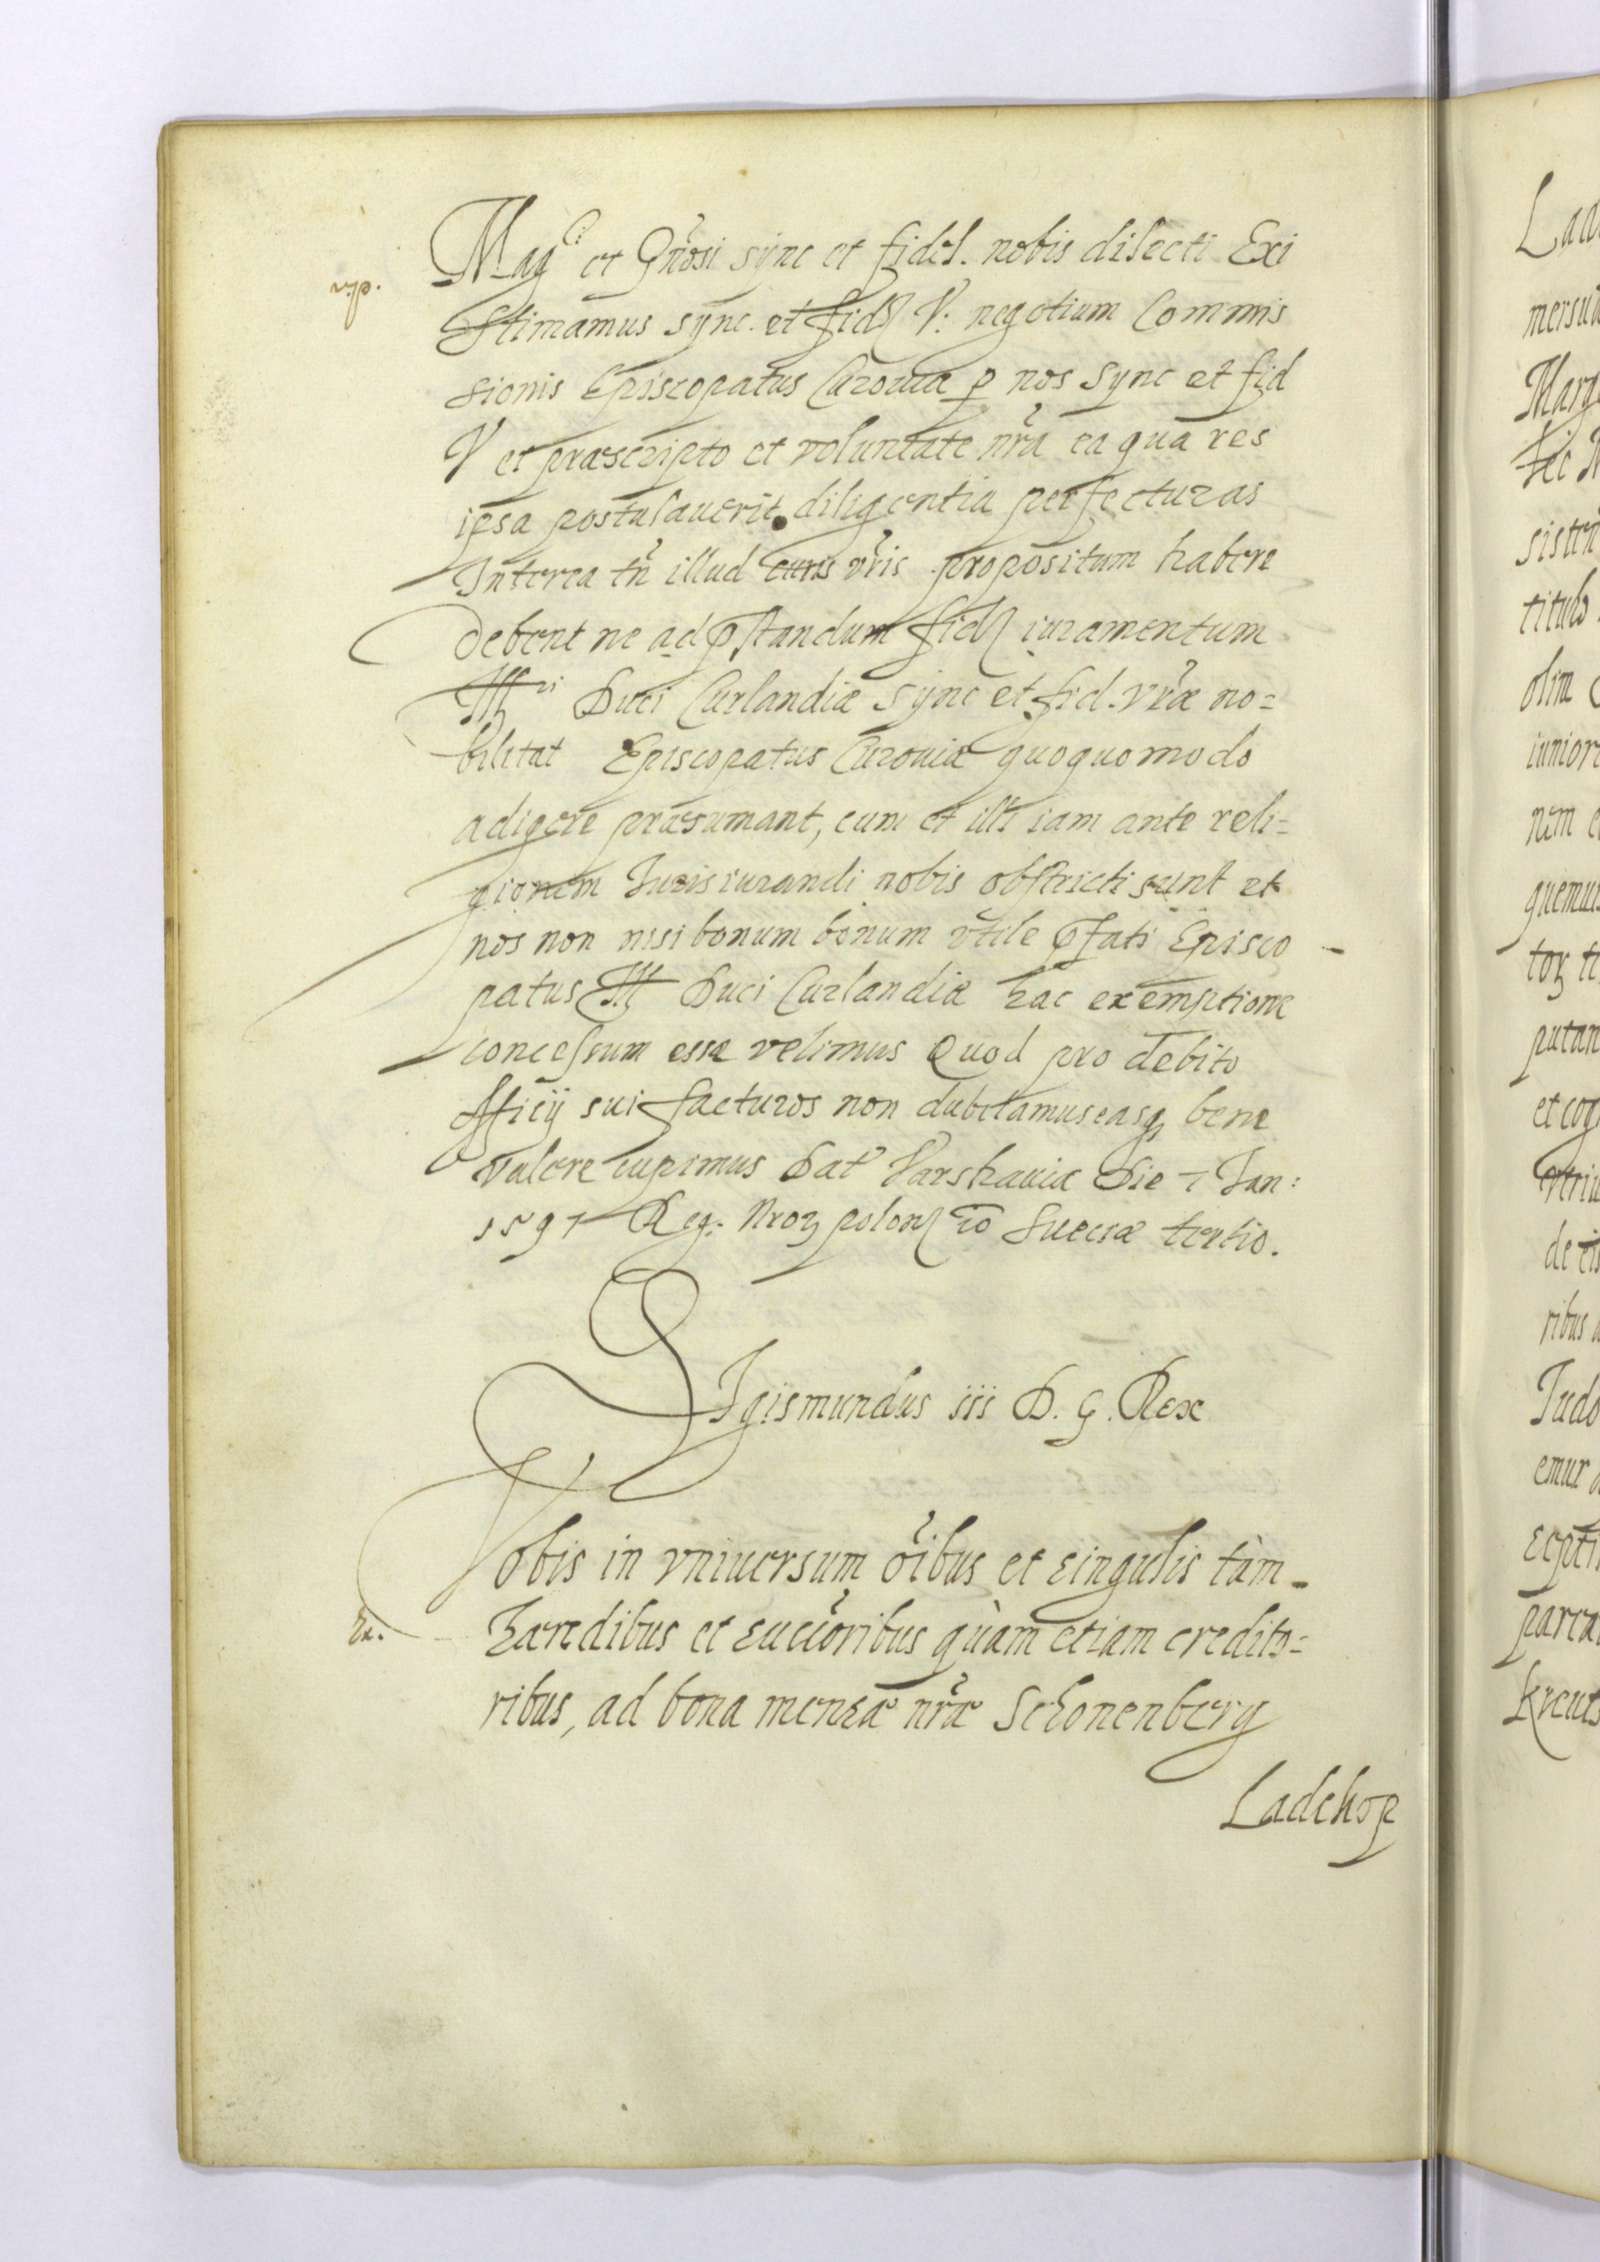 Mag^ci et Gnosi sync et fidel. nobis dilecti Exi
stimamus sync. et fid V. negotium Commis
sionis Episcopatus Curoniæ p nos sync et fid
V et præscripto et voluntate nra ea qua res
ipsa postulauerit diligentia perfecturas
Interea tn illud curis vris propositum habere
debent ne ad pstandum fid iuramentum
Ill^ri Duci Curlandiæ sync et fid. vræ no=
bilitat Episcopatus Curoniæ quoquomodo
adigere præsumant, cum et illi iam ante reli=
gionem Jurisiurandi nobis obstricti sunt et
nos non nisi bonum bonum vtile pfati Episco
patus Ill Duci Curlandiæ hac exemptione
concessum esse velimus Quod pro debito
officij sui facturos non dubitamus easq bene
valere cupimus Dat Varshauiæ Die 7 Jan:
1597 Reg: Nror polon io Sueciæ tertio.
Sigismundus iii D. G. Rex
Vobis in vniuersum oibus et singulis tàm
hæredibus et succoribus quàm etiam credito=
ribus, ad bona mensæ nræ Schonenberg
Ladehop